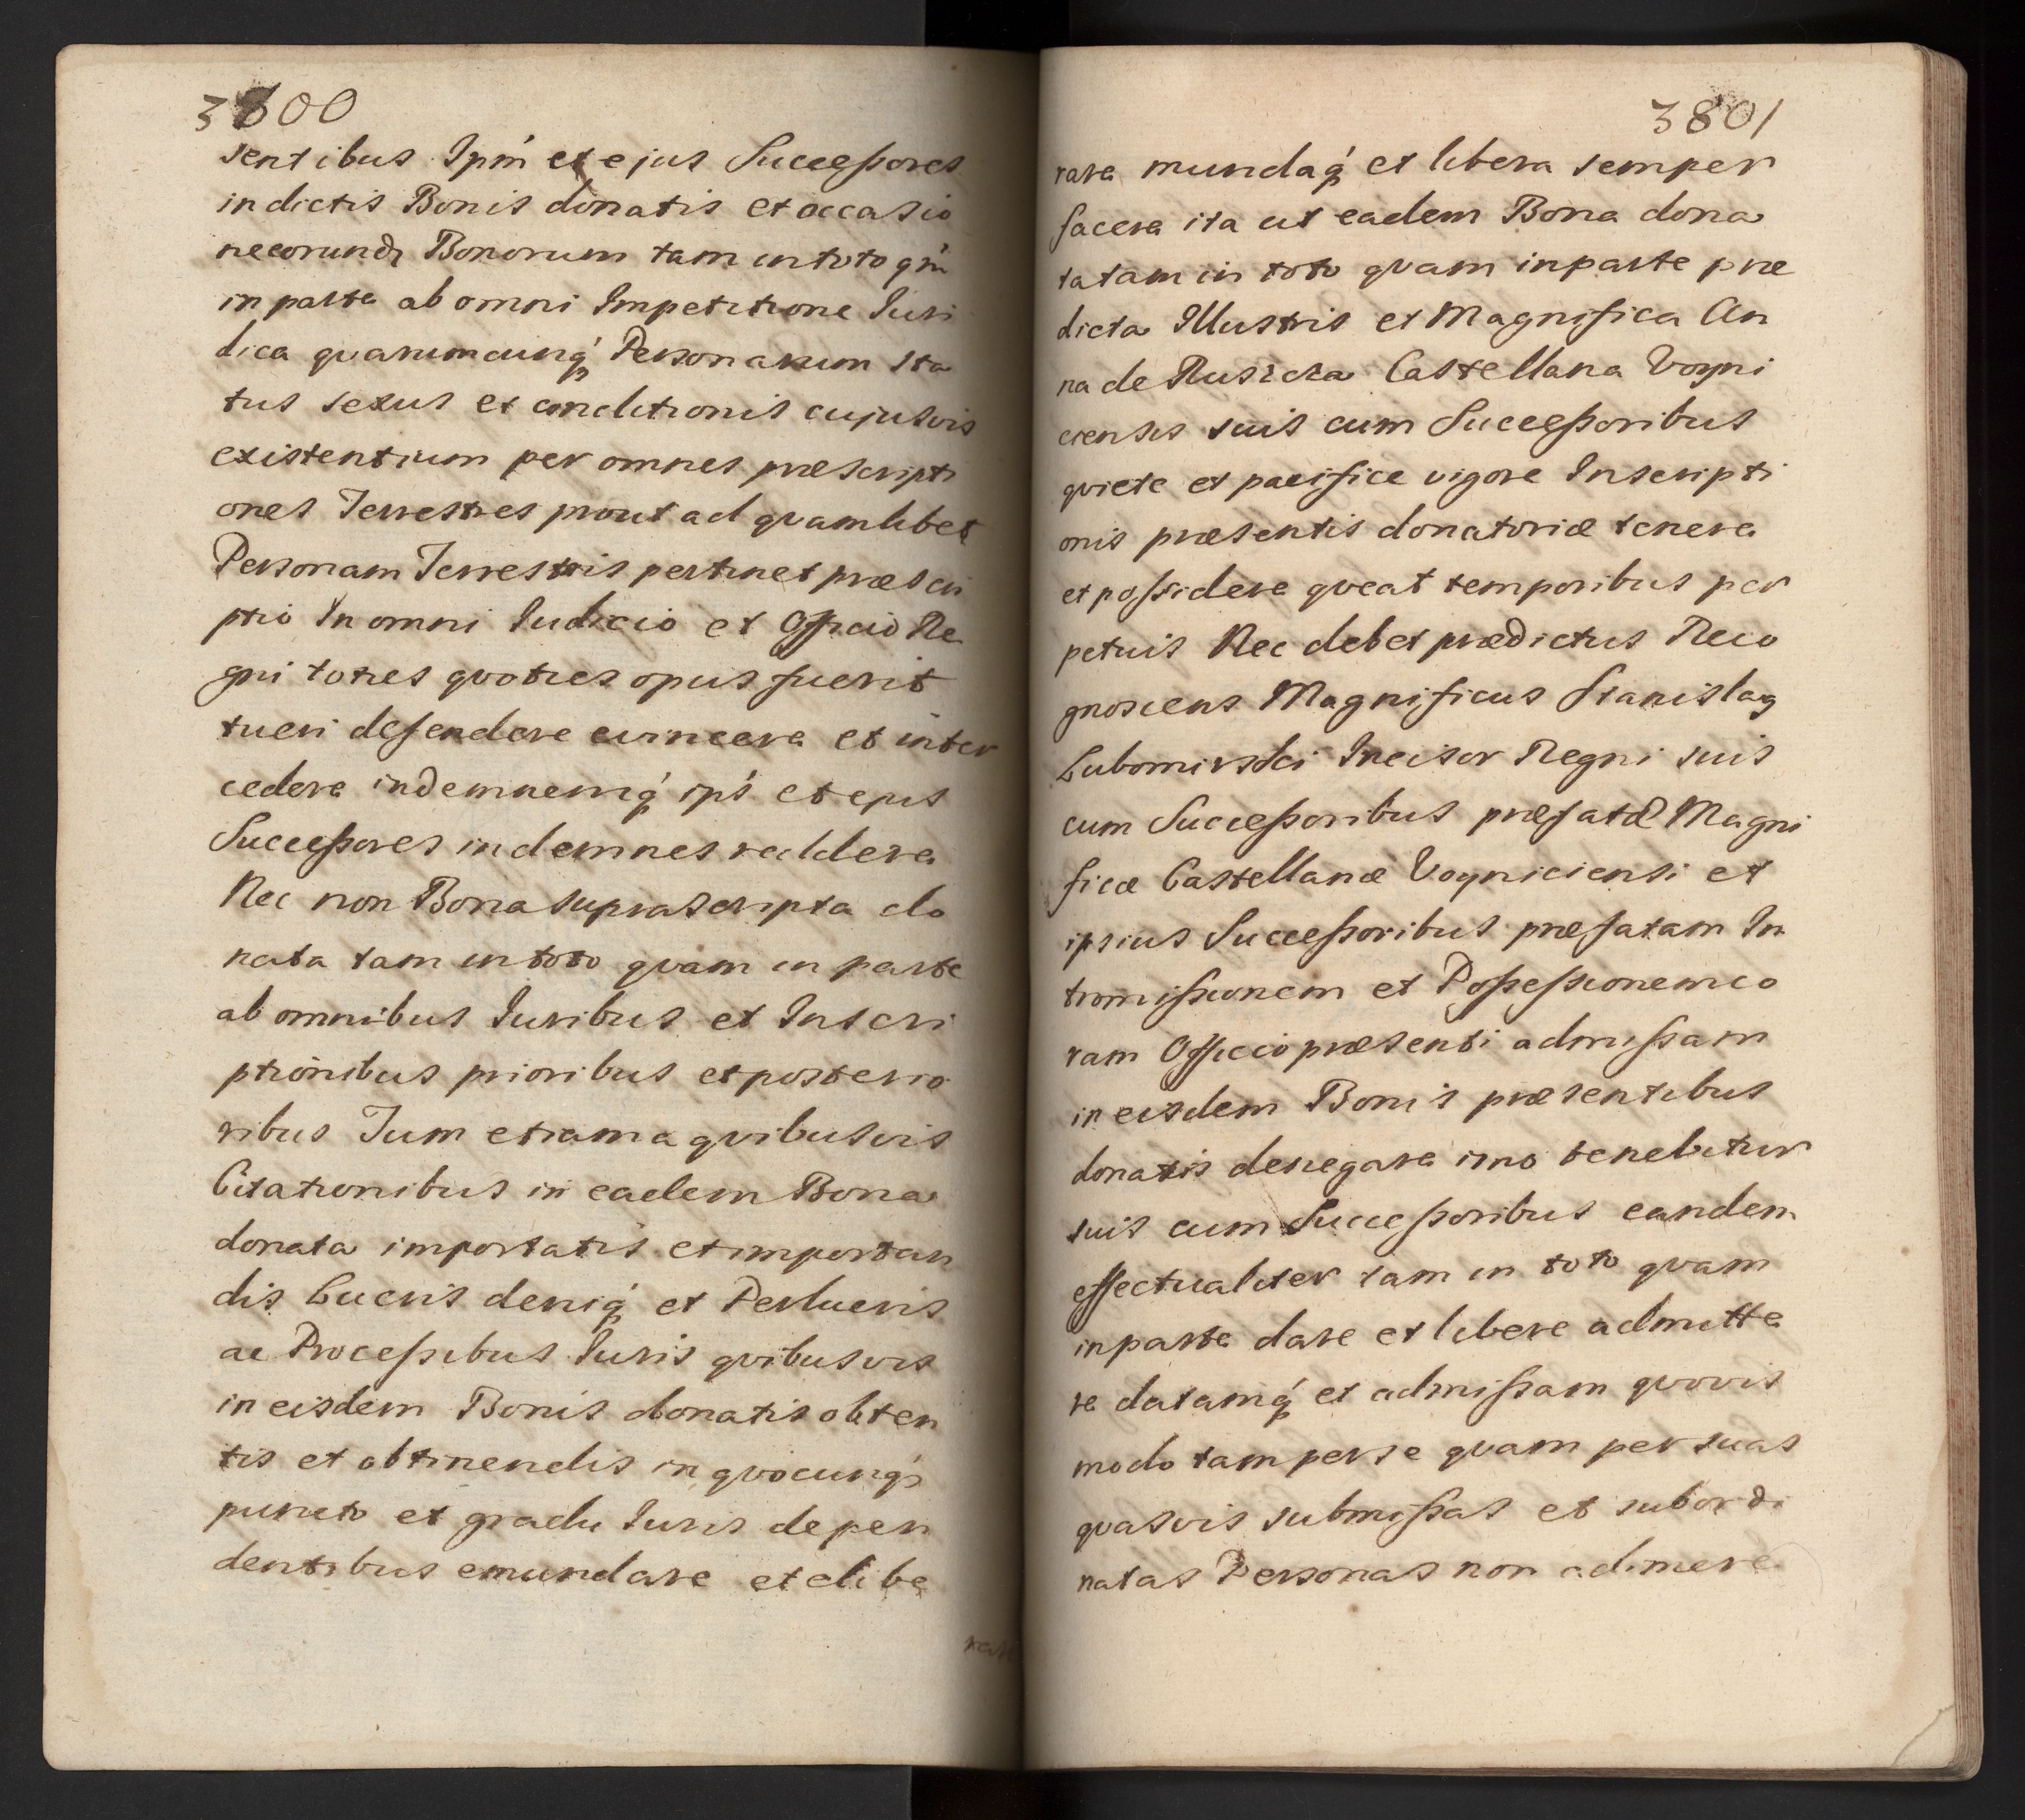 3800
sentibus Ipm̃ et ejus Successores
in dictis Bonis donatis et occasio
ne eorund Bonorum tam in toto qm̃
in parte ab omni Impetitione Juri
dica quarumcunq́ Personarum sta
tus sexus et conditionis cujusvis
existentium per omnes præscripti
ones Terrestres prout ad quamlibet
Personam Terrestris pertinet præscri
ptio In omni Judicio et Officio Re
gni toties quoties opus fuerit
tueri defendere evincere et inter
cedere indemnemq́ ips̃ et ejus
Successores indemnes reddere
Nec non Bona suprascripta do
nata tam in toto quam in parte
ab omnibus Juribus et Inscri
ptionibus prioribus et posterio
ribus Tum etiam a quibusvis
Citationibus in eadem Bona
donata importatis et importan
dis Lucris deniq́ et Perlucris
ac Processibus Juris quibusvis
in eisdem Bonis donatis obten
tis et obtinendis in quocunq́
puncto et gradu Juris depen
dentibus emundare et elibe
rare
3801
rare mundaq́ et libera semper
facere ita ut eadem Bona dona
ta tam in toto quam in parte præ
dicta Illustris et Magnifica An
na de Rusicka Castellana Voyni
ciensis suis cum Successoribus
quiete et pacifice vigore Inscripti
onis præsentis donatoriæ tenere
et possidere queat temporibus per
petuis Nec debet prædictus Reco
gnoscens Magnificus Stanislaq
Lubomirski Incisor Regni suis
cum Successoribus præfatæ Magni
ficæ Castellanæ Voyniciensi et
ipsius Successoribus præfatam In
tromissionem et Possessionem co
ram Officio præsenti admissam
in eisdem Bonis præsentibus
donatis denegare imo tenebitur
suis cum Successoribus eandem
effectualiter tam in toto quam
in parte dare et libere admitte
re datamq́ et admissam quovis
modo tam per se quam per suas
quasvis submissas et subordi
natas Personas non adimere